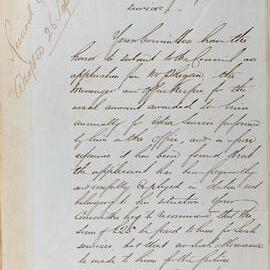 services.
Your Committee have the
honor to submit to the Council an
application from Mr Regan the
Messenger and Office Keeper, for the
usual amount awarded to him
annually for extra services performed
by him in the Office, and in
it has been found that
the applicant has been frequently
usefully employed in duties not
belonging to his situation. Your
Committee beg to recommend that the
sum of £25 be paid to him for such
services, but that no such allowance
be made to him for the future
Adopted 25